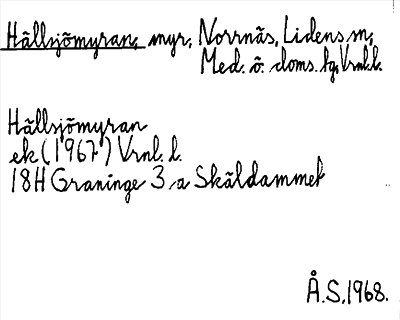 Hällsjömyran, myr, Norrnäs, Lidens sn,
Med. ö. doms. tg, Vrnl. l.
Hällsjömyran
ek (1967) Vrnl. l.
18H Graninge 3 a Skäldammet
Å.S. 1968.